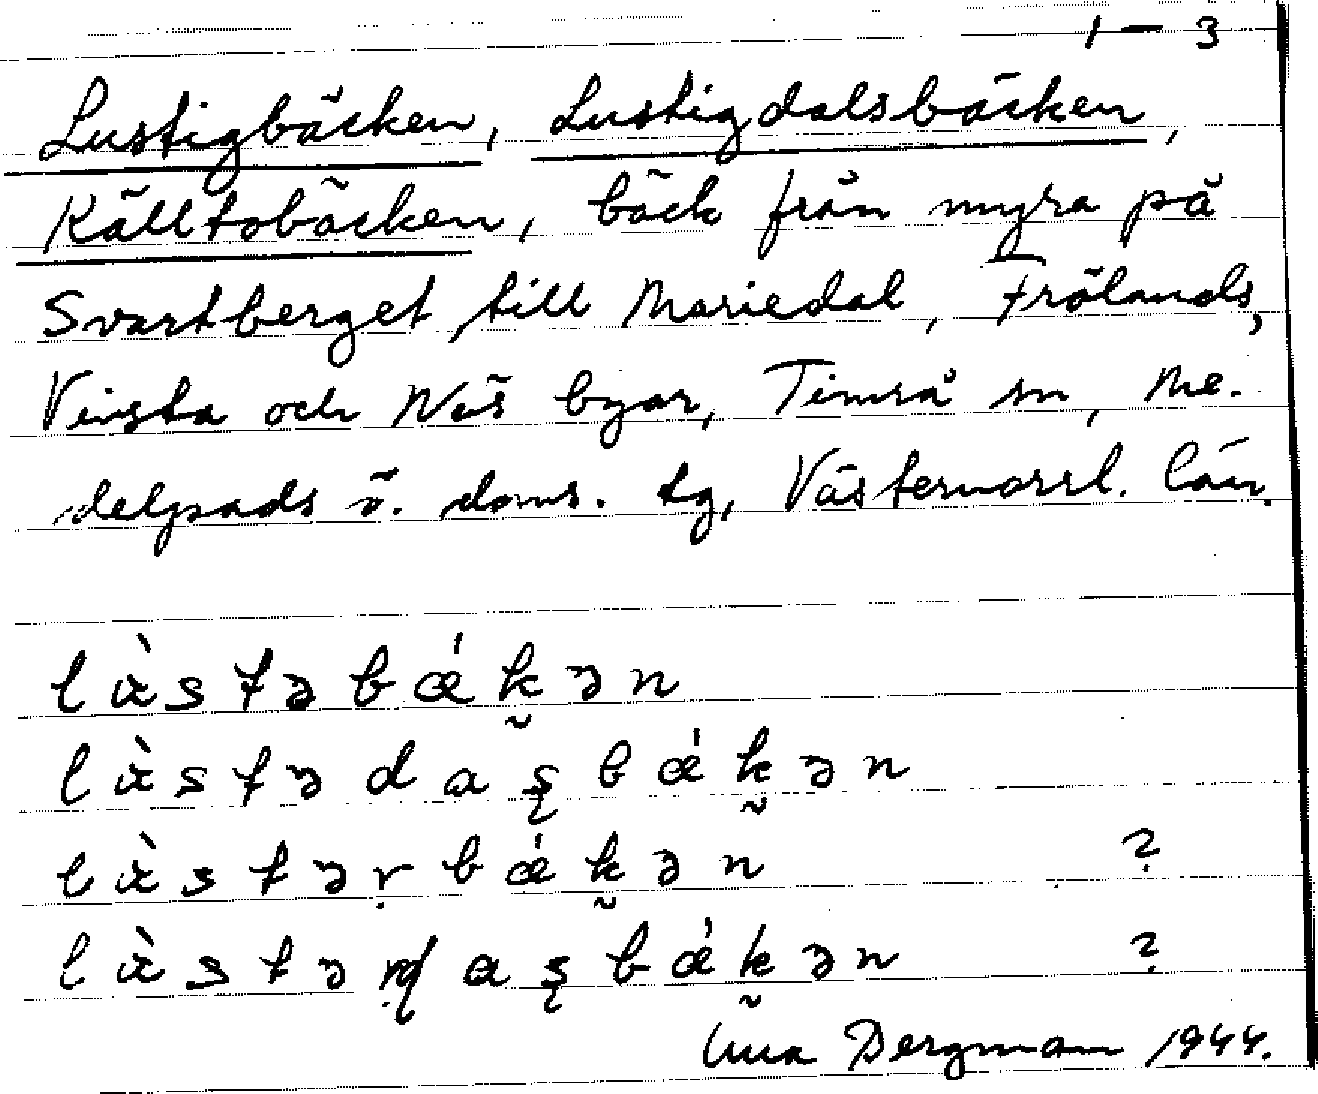 1 — 3
Lustigbäcken, Lustigdalsbäcken,
Källtobäcken, bäck från myra på
Svartberget till Mariedal, Frölands,
Vivsta och Näs byar, Timrå sn, Me-
delpads ö. doms. tg, Västernorrl. län.
lʉ̀stəbǽk̮ən
lʉ̀stədaʂbǽk̮ən
lʉ̀stəṛbǽk̮ən ?
lʉ̀stəɖaʂbǽk̮ən ?
Bergman 1944.